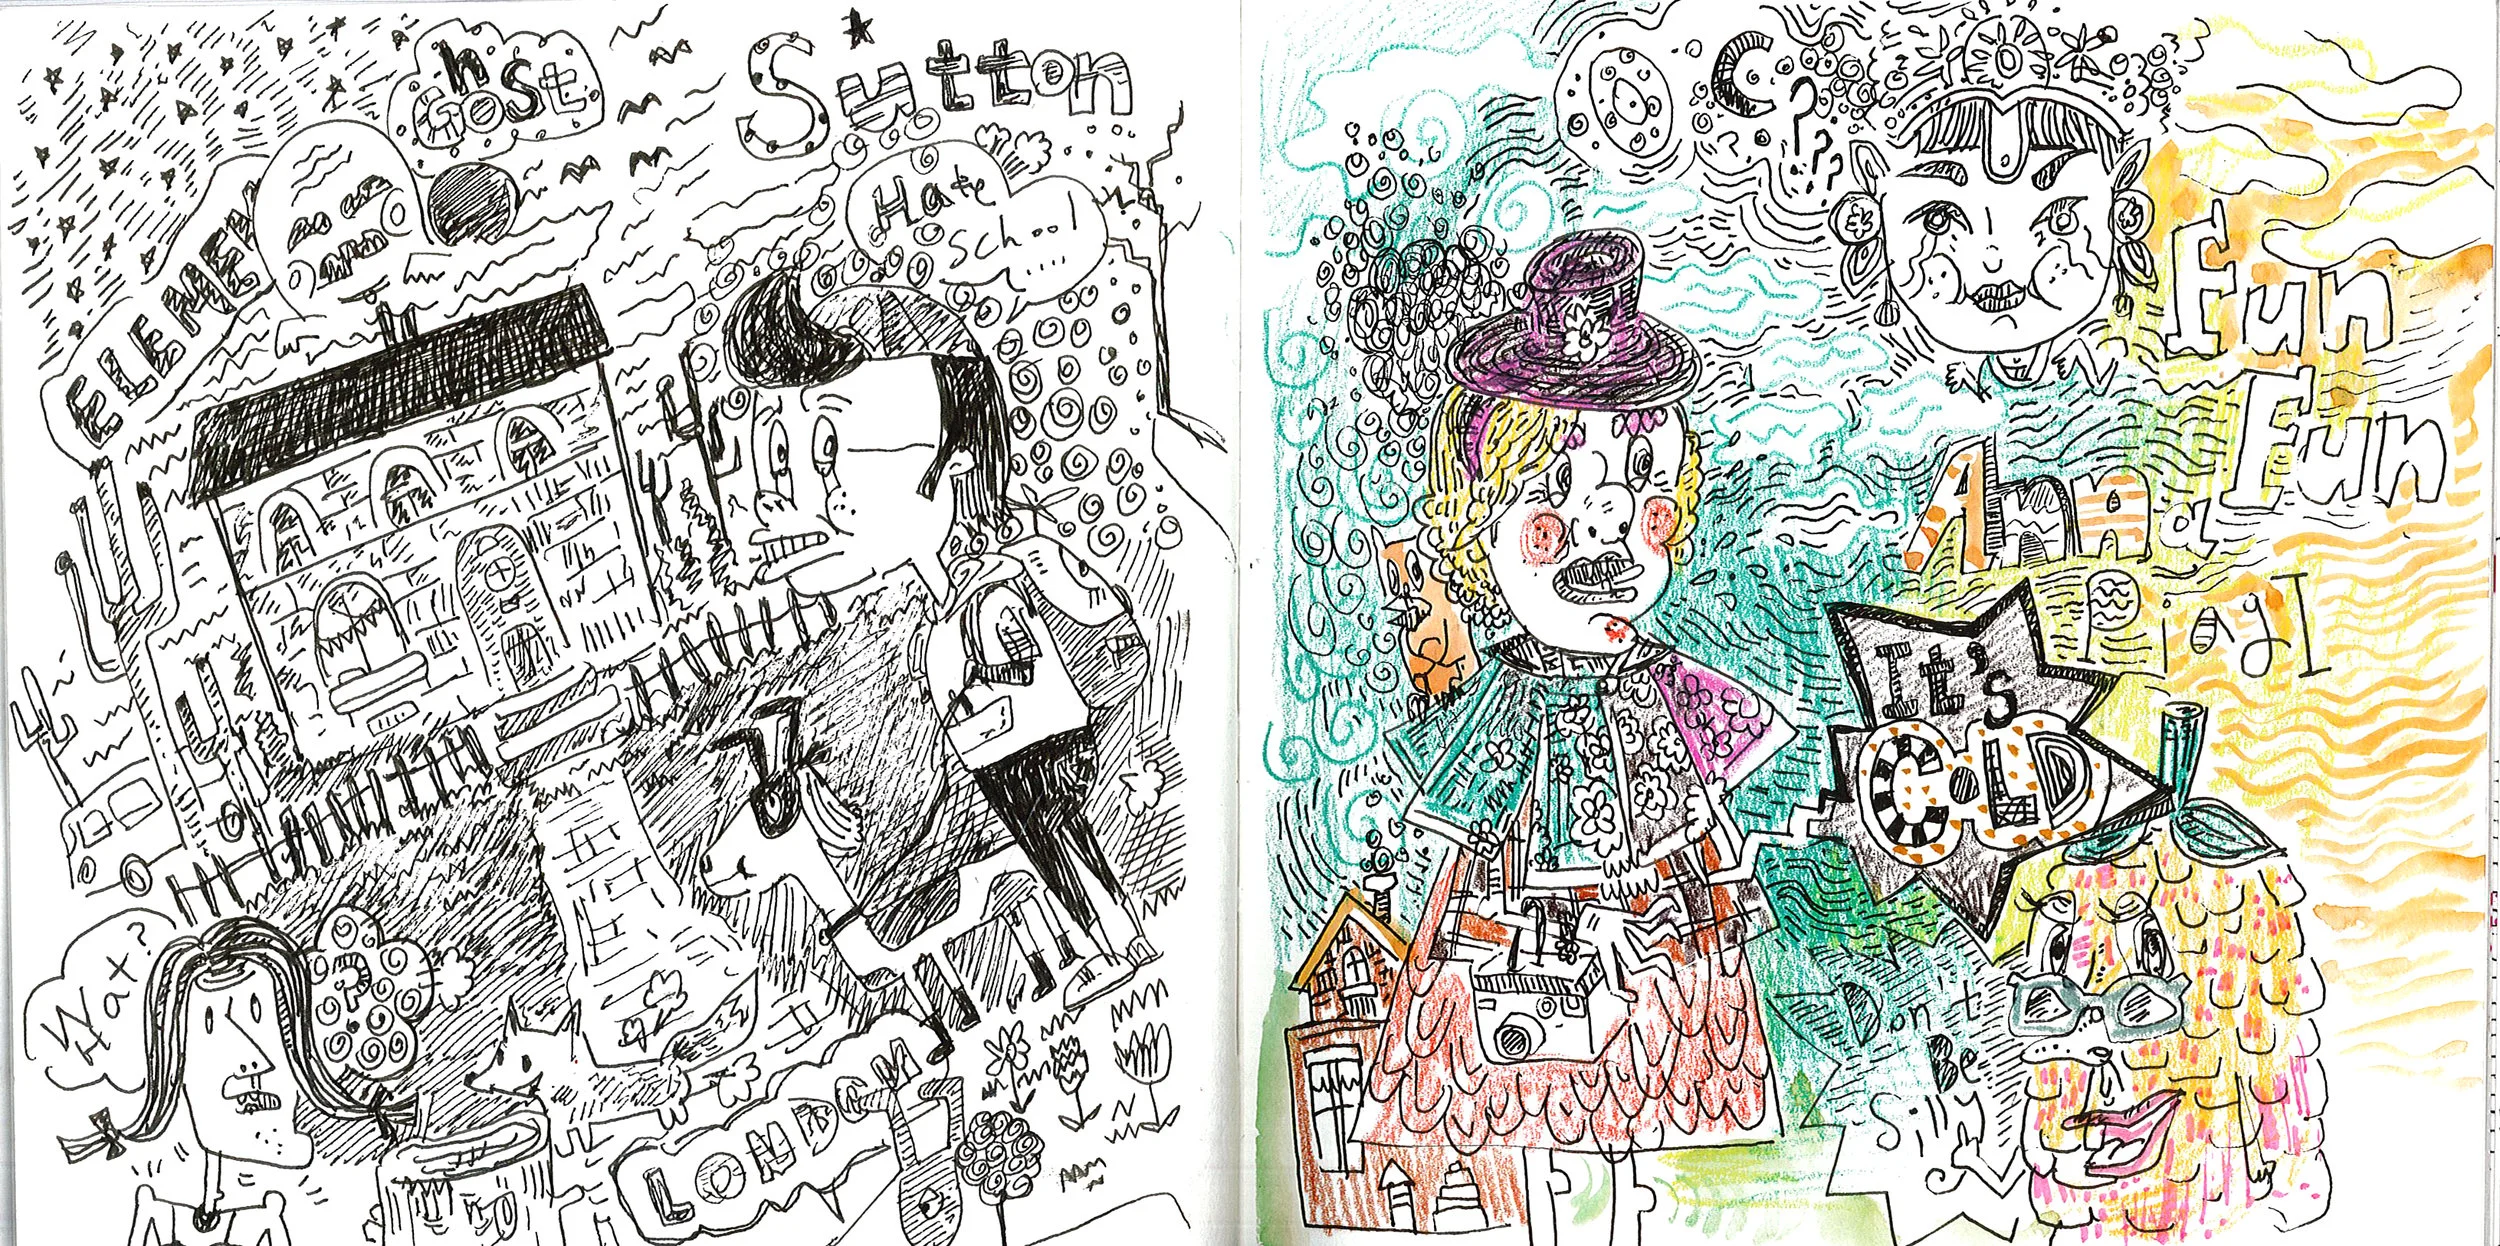 Ghost
Sutton
ELEMEN
Hate
School
....
Wax?
Hat
LONDON
OC?
???
Fun
Fun
And
It's
COLD
Don't
Be
Silly